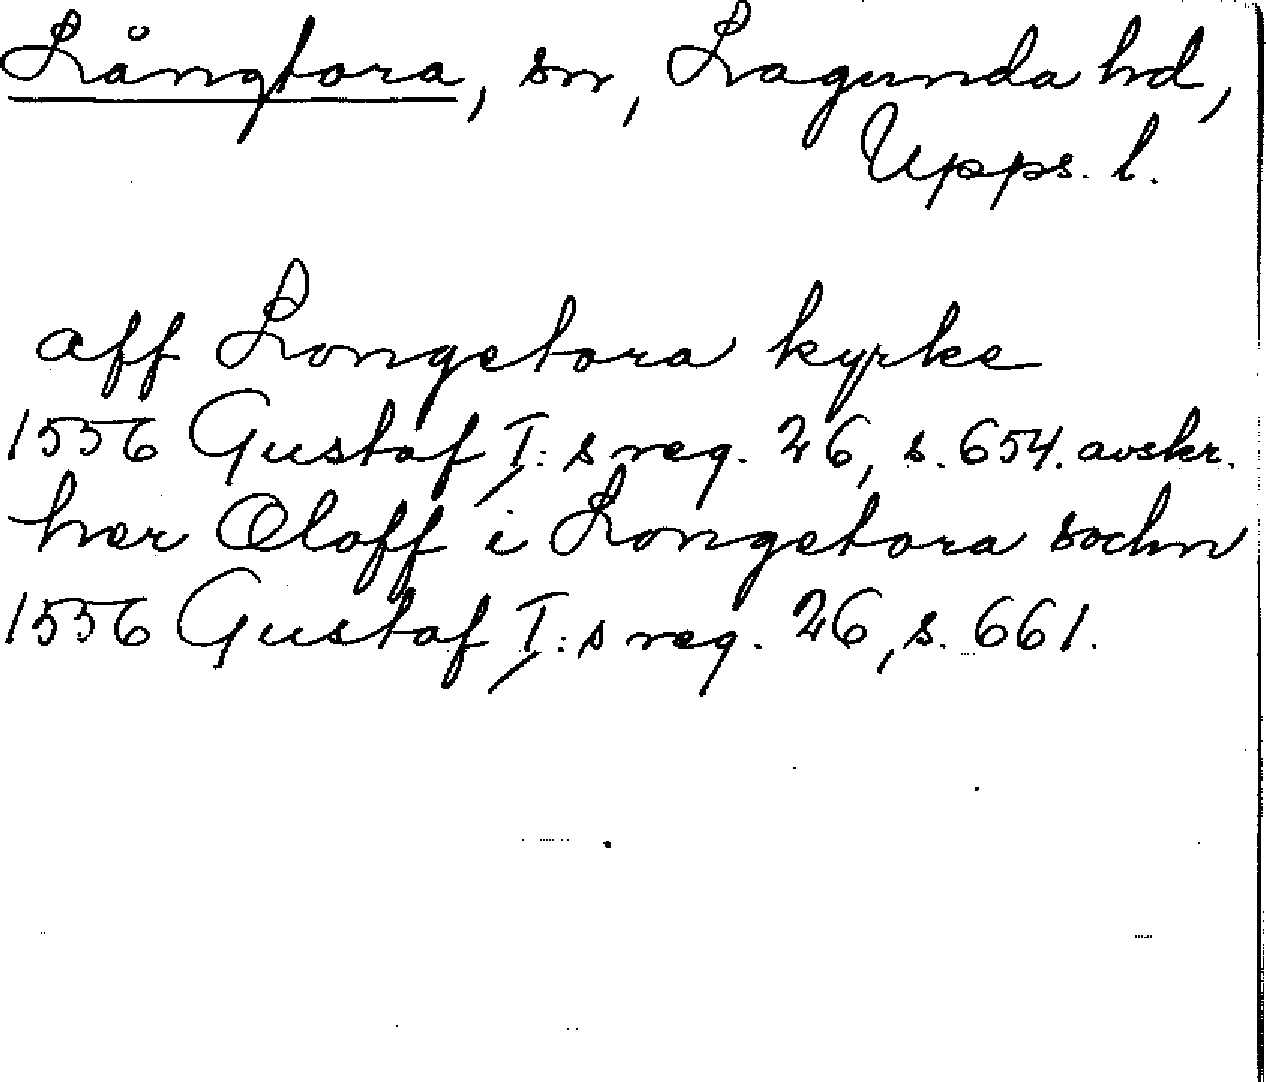 Långtora, sn, Lagunda hd,
Upps. l.
aff Longetora kyrke
1556 Gustaf I:s reg. 26, s. 654. avskr.
her Oloff i Longetora sochn
1556 Gustaf I:s reg. 26, s. 661.